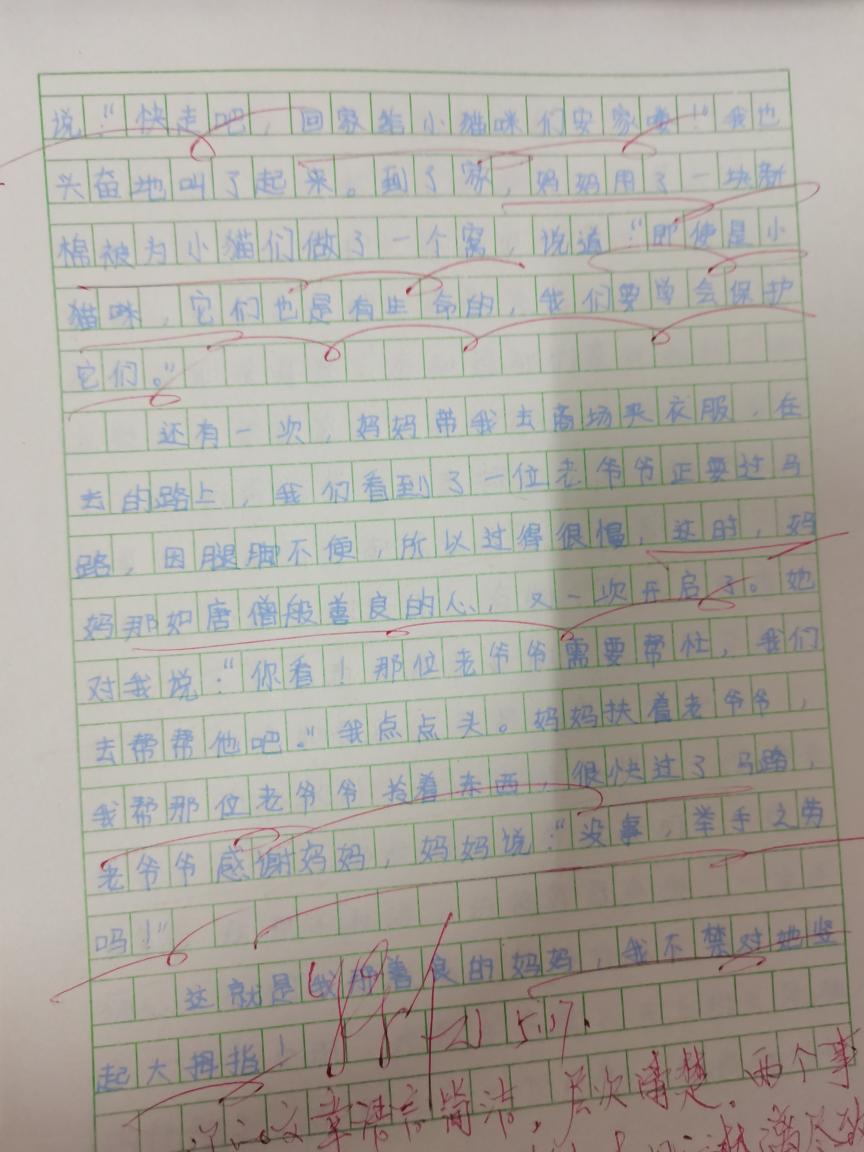 说："快走吧，回家给小猫咪们安家喽！"我也
兴奋地叫了起来。到了家，妈妈用了一块新
棉被为小猫们做了一个窝，说道："即使是小
猫咪，它们也是有生命的，我们要学会保护
它们。"
还有一次，妈妈带我去商场买衣服，在
去的路上，我们看到了一位老爷爷正要过马
路，因腿脚不便，所以过得很慢，这时，妈
妈那如唐僧般善良的心，又一次开启了。她
对我说："你看！那位老爷爷需要帮忙，我们
去帮帮他吧。"我点点头。妈妈扶着老爷爷，
我帮那位老爷爷拎着东西，很快过了马路，
老爷爷感谢妈妈，妈妈说："没事，举手之劳
吗！"
这就是我善良的妈妈，我不禁对她竖
起大拇指！
5.17.
文章语言简洁，层次清楚。两个事